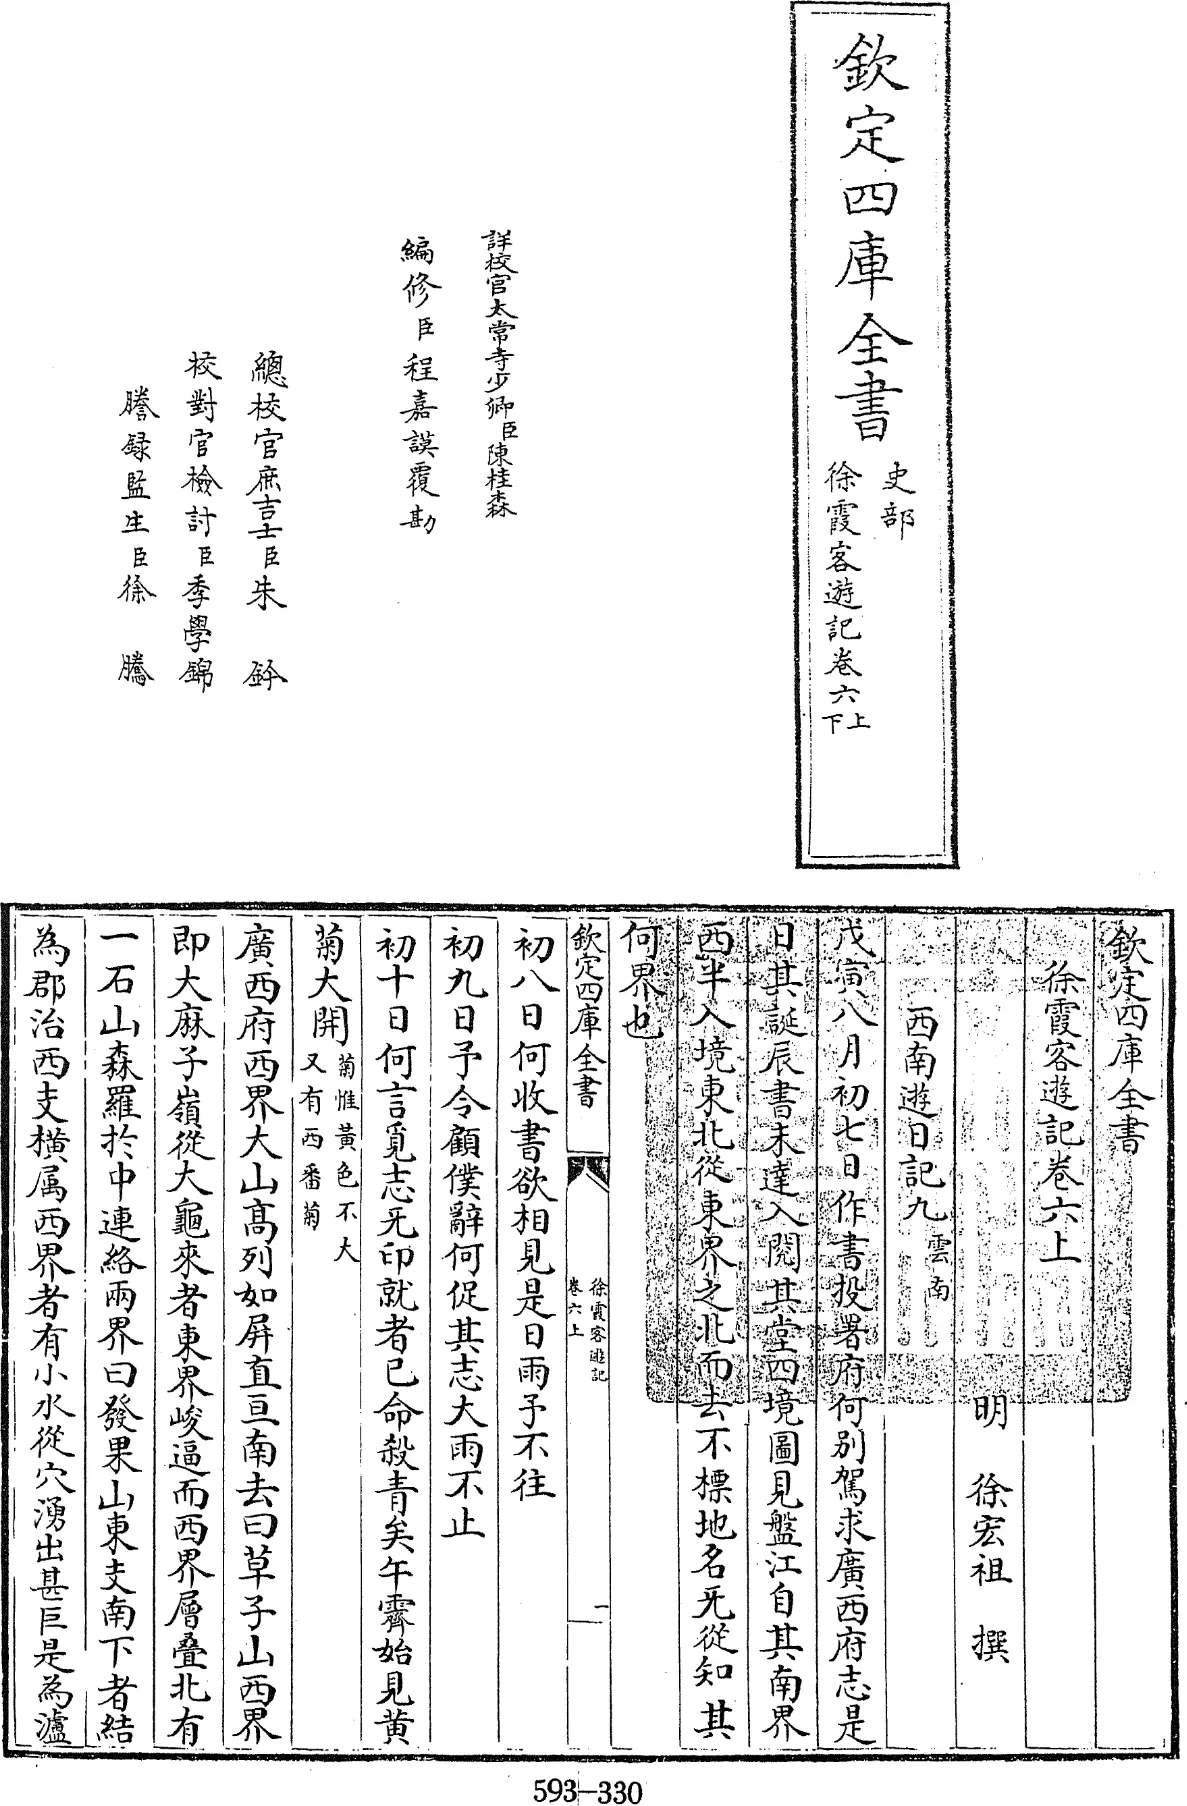 欽定四庫全書
史部
徐霞客遊記卷六上
下
詳校官太常寺少卿臣陳桂森
編修臣程嘉謨覆勘
總校官庶吉士臣朱鈐
校對官檢討臣季學錦
謄録監生臣徐騰
欽定四庫全書
徐霞客遊記卷六上
明 徐宏祖 撰
西南遊日記九雲南
戊寅八月初七日作書投署府何别駕求廣西府志是
日其誕辰書未達入閱其堂四境圖見盤江自其南界
西半入境東北從東界之北而去不標地名无從知其
何界也
欽定四庫全書
徐霞客遊記
卷六上
一
初八日何收書欲相見是日雨予不往
初九日予令顧僕辭何促其志大雨不止
初十日何言覓志无印就者已命殺青矣午霽始見黄
菊大開菊惟黄色不大
又有西番菊
廣西府西界大山髙列如屏直亘南去曰草子山西界
即大麻子嶺從大龜來者東界峻逼而西界層叠北有
一石山森羅扵中連絡兩界曰發果山東支南下者結
為郡治西支横属西界者有小水從穴湧出甚巨是為瀘
593-330